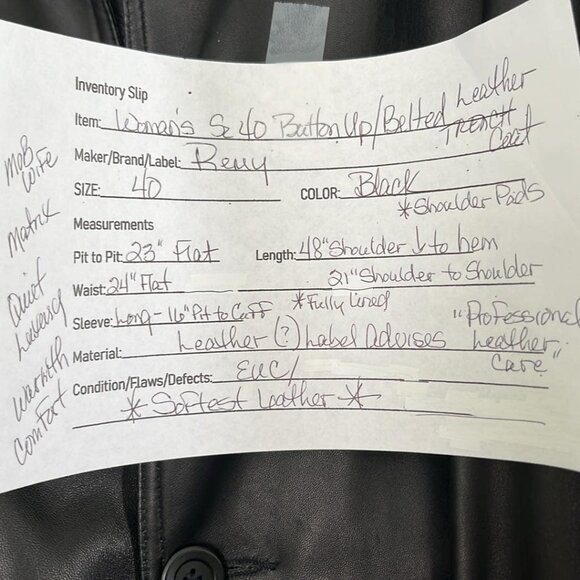 Inventory Slip
Item: Woman's Sz 40 Button Up/Belted Leather
TRENCH
Coat
Maker/Brand/Label: Remy
SIZE: 40 COLOR: Black
*Shoulder Pads
Measurements
Pit to Pit: 23" Flat Length: 48" Shoulder ↓ to hem
Waist: 24" Flat 21" Shoulder to Shoulder
Sleeve: Long - 16" Pit to Cuff *Fully Lined
Material: Leather (?) Label Advises "Professional
Leather
Care"
Condition/Flaws/Defects: EUC/
* Softest Leather *
MOB
Wife
Matrix
Quiet
Luxury
Warmth
Comfort